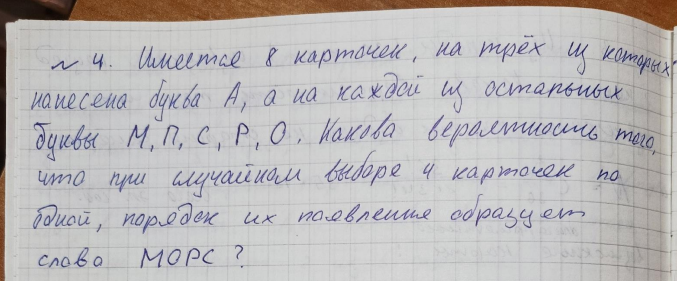 № 4. Имеется 8 карточек, на трёх из которых
нанесена буква А, а на каждой из остальных
буквы М, П, С, Р, О. Какова вероятность того,
что при случайном выборе 4 карточек по
одной, порядок их появления образует
слово МОРС?